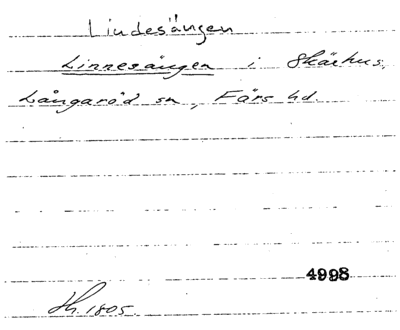 Lindesängen
Linnesången i Skärhus,
Långaröd sn, Färs hd.
4998
Sk. 1805.